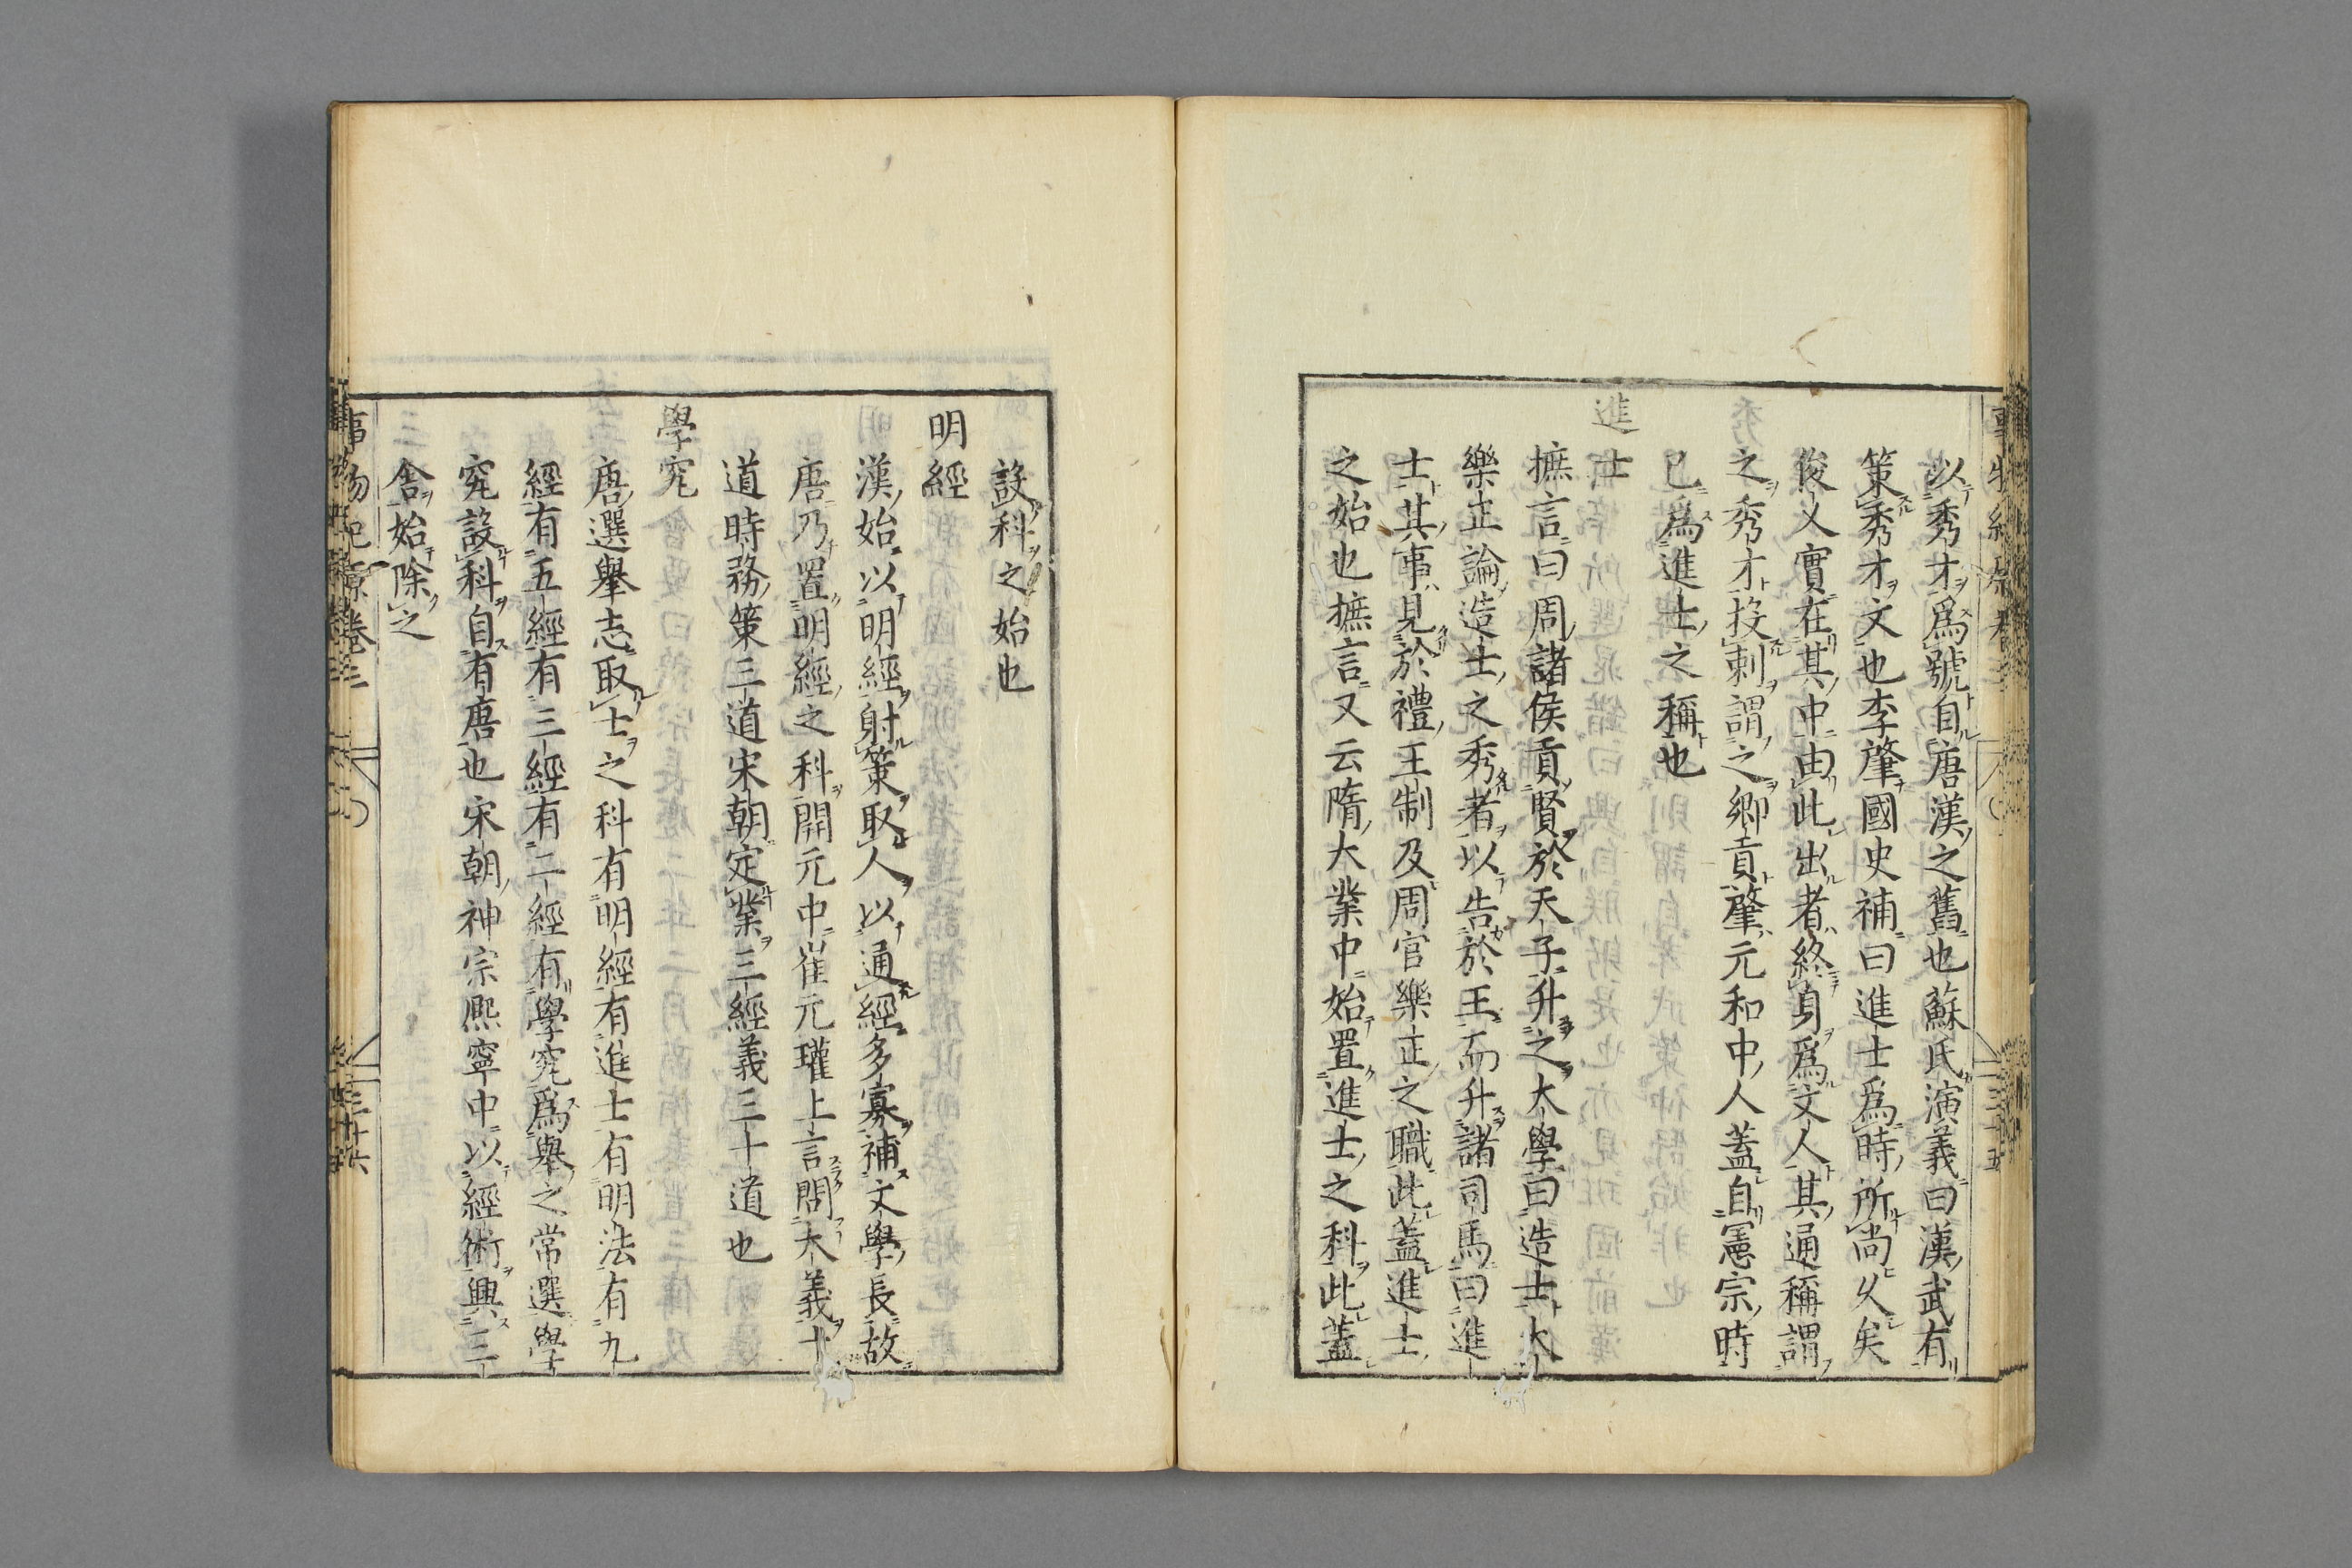 以秀才爲號自唐漢之舊也蘇氏演義曰漢武有
策秀才文也李肇國史補曰進士爲時所尚久矣
俊乂實在其中由此出者終身爲文人其通稱謂
之秀才投刺謂之鄉貢肇元和中人蓋自憲宗時
已爲進士之稱也
進士
摭言曰周諸侯貢賢於天子升之大學曰造士大
樂正論造士之秀者以告於王而升諸司馬曰進
士其事見於禮王制及周官樂正之職此蓋進士
之始也摭言又云隋大業中始置進士之科此蓋
設科之始也
明經
漢始以明經射策取人以通經多寡補文學長故
唐乃置明經之科開元中崔元瓘上言問大義十
道時務策三道宋朝定業三經義三十道也
學究
唐選舉志取士之科有明經有進士有明法有九
經有五經有三經有二經有學究爲舉之常選學
究設科自有唐也宋朝神宗熈寧中以經術興三
舍始除之
事物紀原卷三
三十六